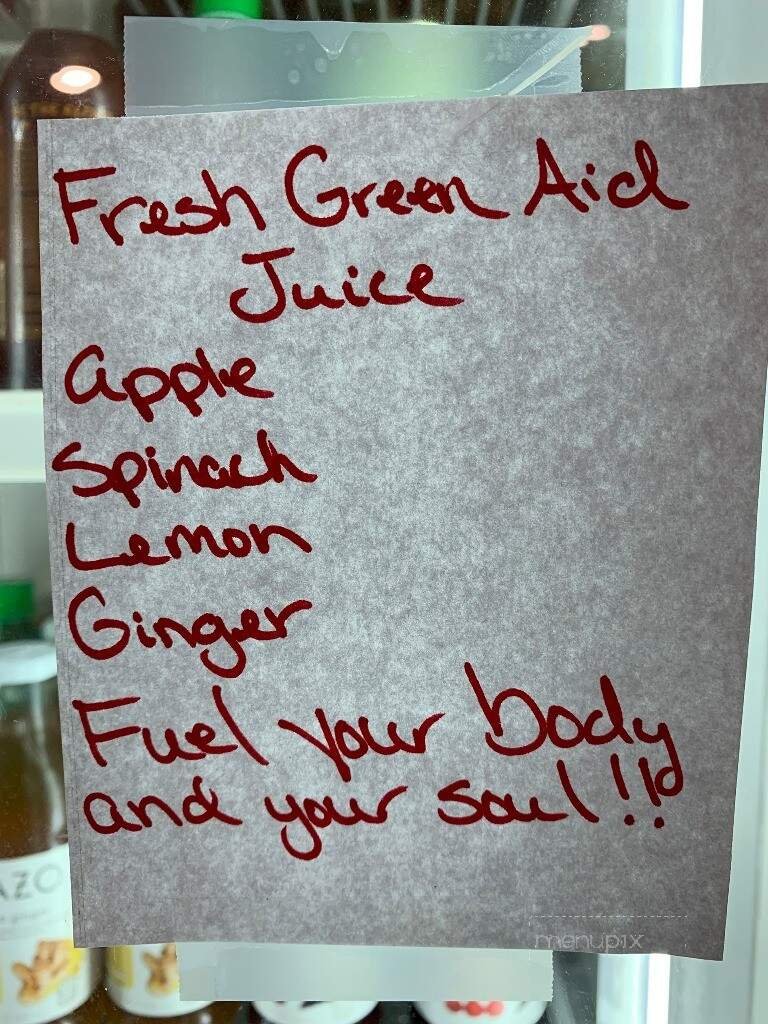 Fresh Green Aid
Juice
apple
Spinach
Lemon
Ginger
Fuel your body
and your soul!!
AZO
menupix